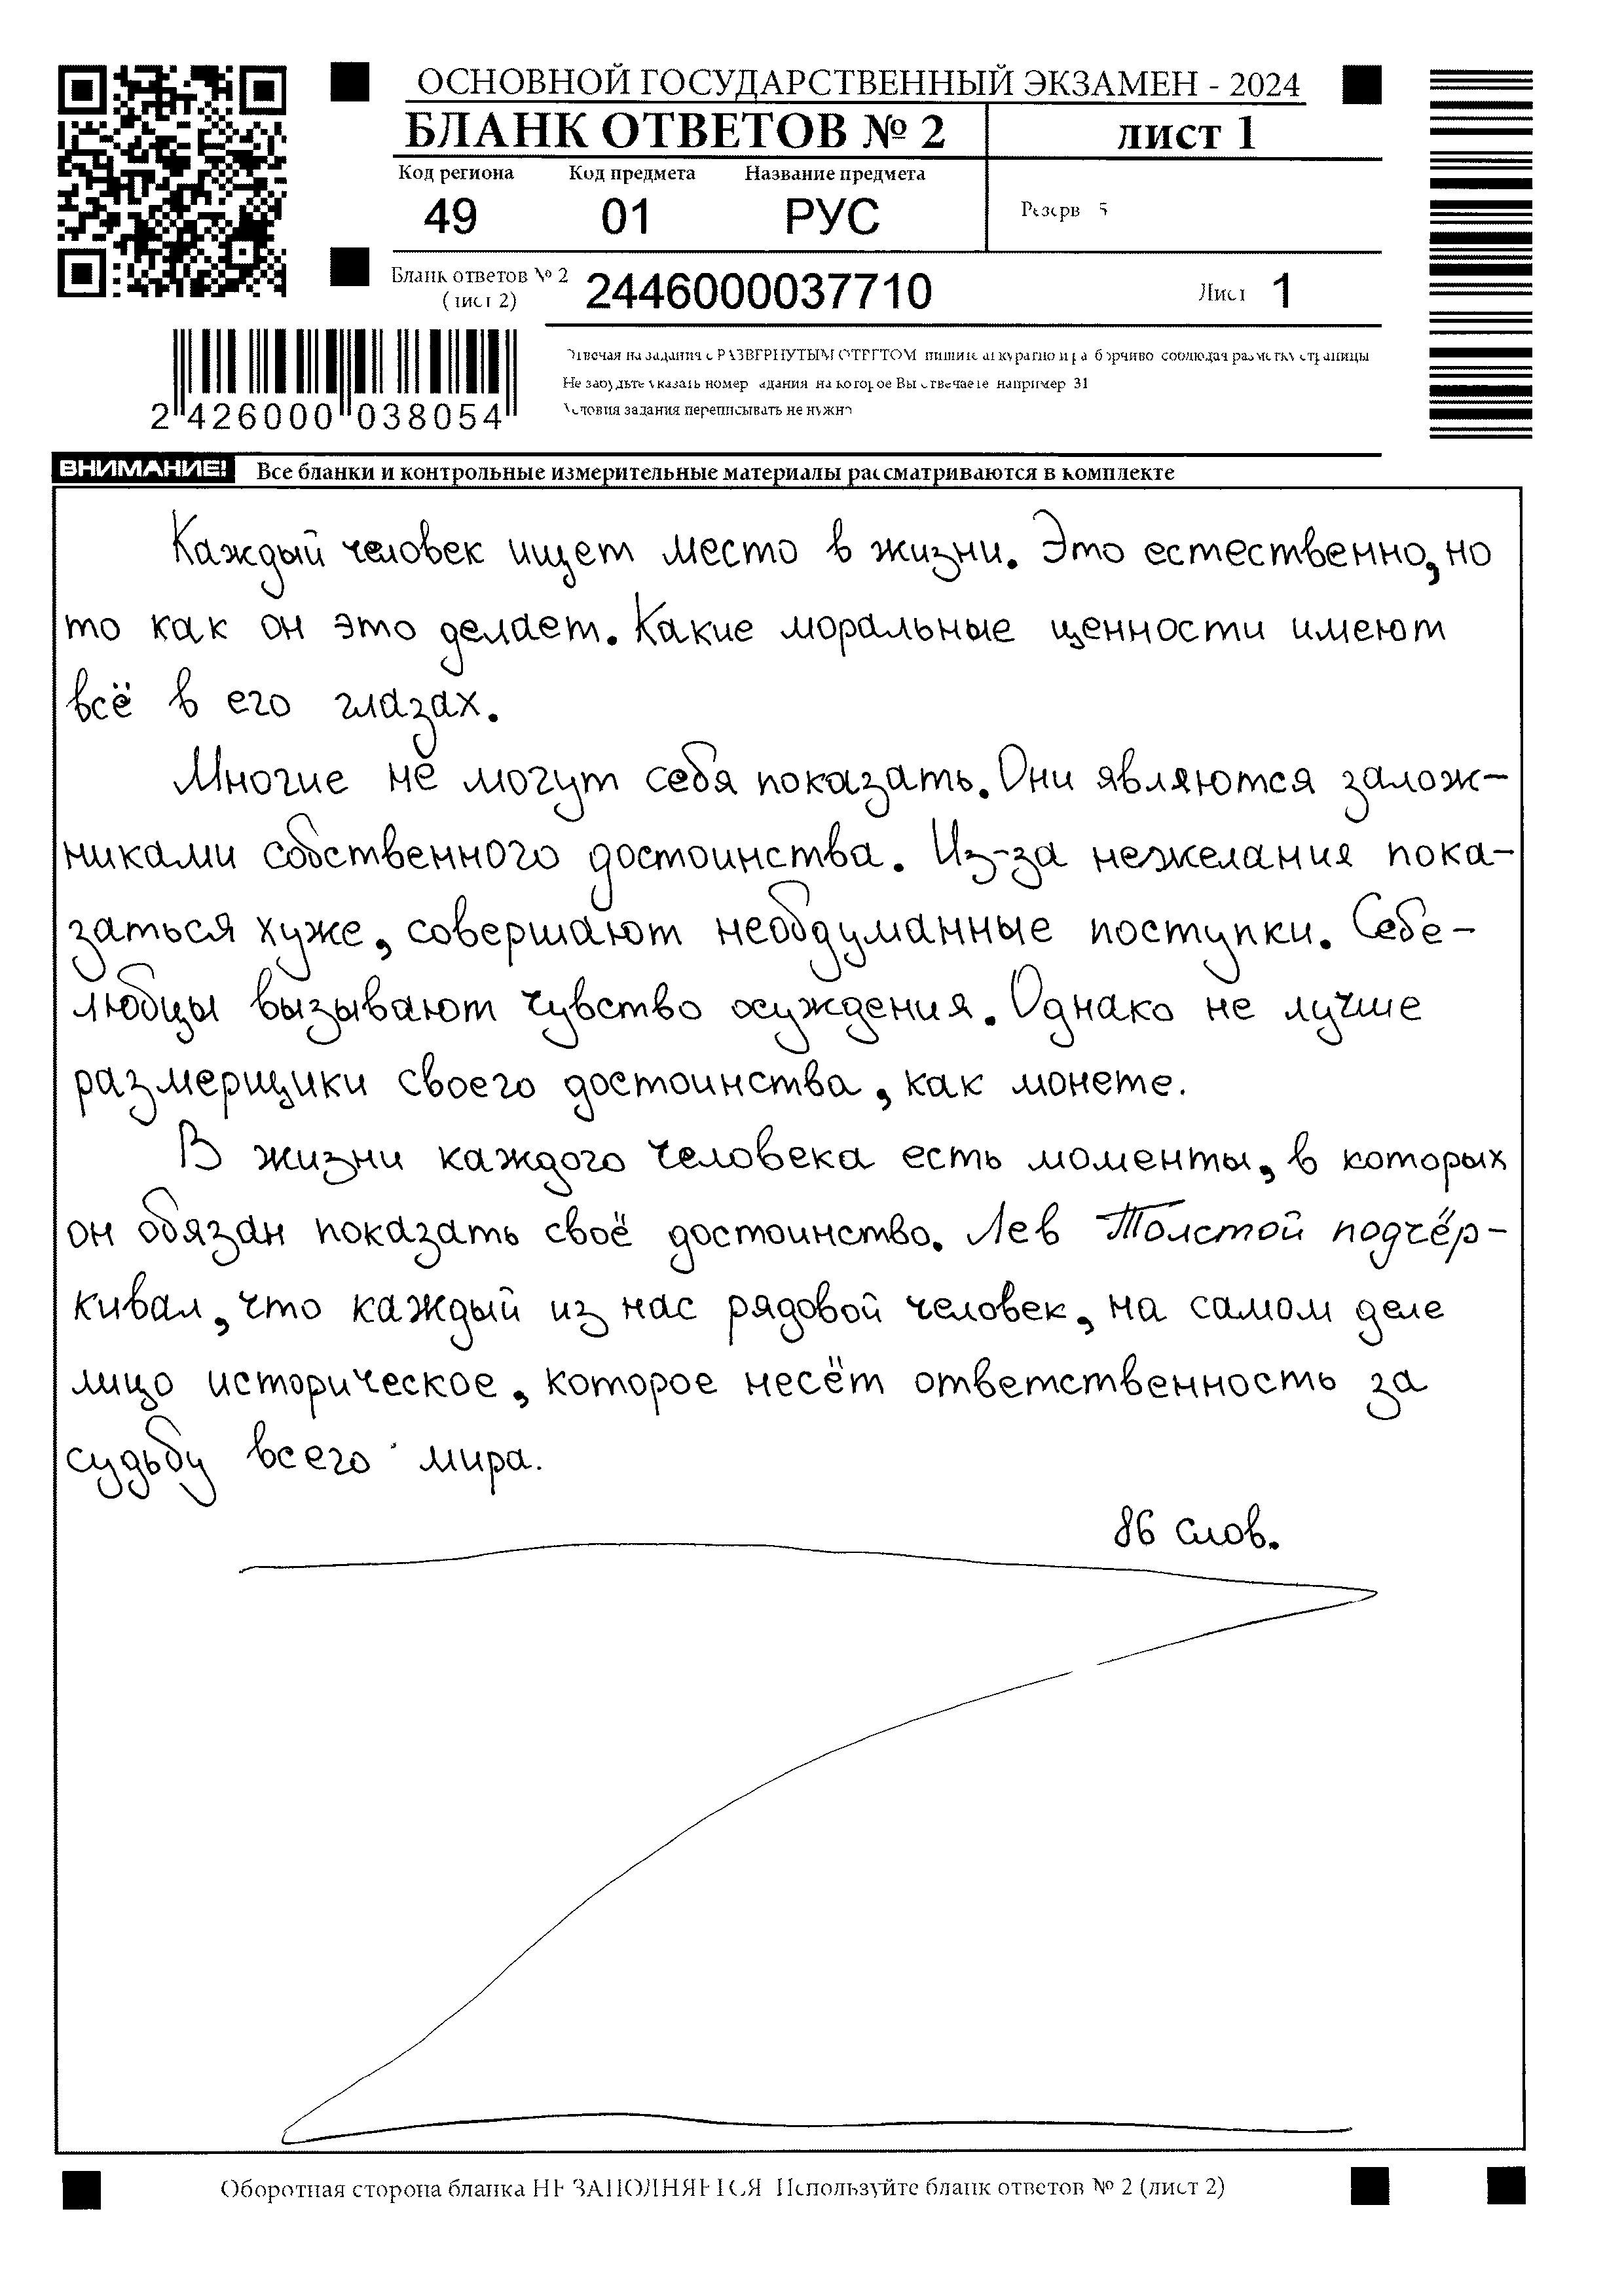 ОСНОВНОЙ ГОСУДАРСТВЕННЫЙ ЭКЗАМЕН - 2024
БЛАНК ОТВЕТОВ № 2
лист 1
Код региона Код предмета Название предмета
49 01 РУС
Резерв - 5
Бланк ответов № 2
(лист 2)
2446000037710
Лист 1
Отвечая на задания с РАЗВЕРНУТЫМ ОТВЕТОМ пишите аккуратно и разборчиво соблюдая разметку страницы
Не забудьте указать номер задания на которое Вы отвечаете например 31
Условия задания переписывать не нужно
2 426000 038054
ВНИМАНИЕ! Все бланки и контрольные измерительные материалы рассматриваются в комплекте
Каждый человек ищет место в жизни. Это естественно, но
то как он это делает. Какие моральные ценности имеют
всё в его глазах.
Многие не могут себя показать. Они являются залож-
никами собственного достоинства. Из-за нежелания пока-
заться хуже, совершают необдуманные поступки. Себе-
любцы вызывают чувство осуждения. Однако не лучше
размерщики своего достоинства, как монете.
В жизни каждого человека есть моменты, в которых
он обязан показать своё достоинство. Лев Толстой подчёр-
кивал, что каждый из нас рядовой человек, на самом деле
лицо историческое, которое несёт ответственность за
судьбу всего мира.
86 слов.
Оборотная сторона бланка НЕ ЗАПОЛНЯЕТСЯ Используйте бланк ответов № 2 (лист 2)